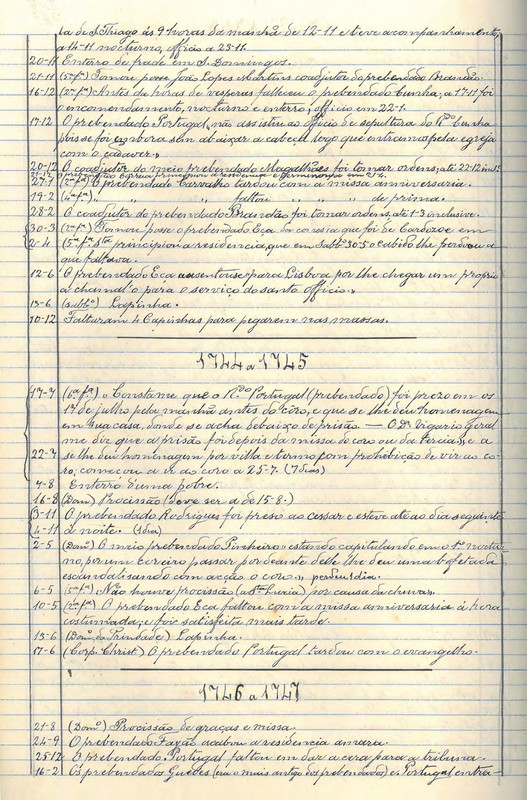 la de S. Thiago ás 9 horas da manhã de 12-11 e teve acompanhamento,
a 14-11 nocturno, officio a 23-11.
20-11 Enterro de frade em S. Domingos.
21-11 (5ª fª) Tomou posse João Lopes Martins coadjutor do prebendado Brandão.
16-12 (2ª fª) Antes da horas de vesperas falleceu o prebendado Cunha; a 17-11 foi
o encomendamento, nocturno e enterro; officio em 22-1.
17-12 O prebendado Portugal, não assistiu ao officio de sepultura do Pdo Cunha
pois se foi embora sem abaixar a cabeça logo que entramos pela egreja
com o cadaver.»
20-12 O coadjutor do meio prebendado Magalhães foi tomar ordens; até 22-12 incl.
21-12 prebendado principiou a residencia e terminou em
27-1 (2ª fª) O prebendado Carvalho tardou com a missa anniversaria.
19-2 (4ª fª) „ „ „ faltou „ „ „ de prima.
28-2 O coadjutor do prebendado Brandão foi tomar ordens, até 1-3 inclusive.
30-3 (2ª fª) Tomou posse o prebendado Eça da conesia que foi de Cardoso e em
2-4 (5ª fª Stª principiou a residencia, que em Sabbº 30-5 o cabido lhe perdoou a
que faltava.
12-6 O prebendado Eça ausentou-se para Lisboa por lhe chegar um proprio
a chamal-o para o serviço do santo officio.»
13-6 (sabbº) Lapinha.
10-12 Faltaram 4 Capinhas para pegarem nas massas.
1744 a 1745
17-7 (6ª fª) «Constame que o R.do Portugal (prebendado) foi prezo em os
17 de julho pela manhã antes do côro, e que se lhe deu homenagem
em sua casa, donde se acha debaixo de prisão. — O Dr Vigario Geral
me diz que a prisão foi depois da missa do coro ou da Tercia,» e a
22-7 se lhe deu homenagem por villa e termo com prohibição de vir ao cô-
ro; começou a ir ao coro a 25-7. (7 dias)
7-8 Enterro d'uma pobre.
16-8 (Domº) Procissão (deve ser a de 15-8.)
3-11 O prebendado Rodrigues foi preso ao cessar e esteve até ao dia seguinte
4-11 á noite. (1 dia)
2-5 (Domº) O meio prebendado Pinheiro «estando capitulando em o 1º noctur-
no, por um coreiro passar por deante delle lhe deu uma bofetada
escandalisando com acção o coro», perdeu 1 dia.
6-5 (5ª fª) «Não houve procissão (a Stª Luzia) por causa da chuva».
10-5 (2ª fª) O prebendado Eça faltou com a missa anniversaria á hora
costumada, e foi satisfeita mais tarde.
13-6 (Domº da Trindade) Lapinha.
17-6 (Corp. Christ.) O prebendado Portugal tardou com o evangelho.
1746 a 1747
21-8 (Domº) Procissão de graças e missa.
24-9 O prebendado Favão acabou a residencia amara.
25-12 O prebendado Portugal faltou em dar a cera para a tribuna.
16-2 Os prebendados Guedes (era o mais antigo dos prebendados) e Portugal entra-